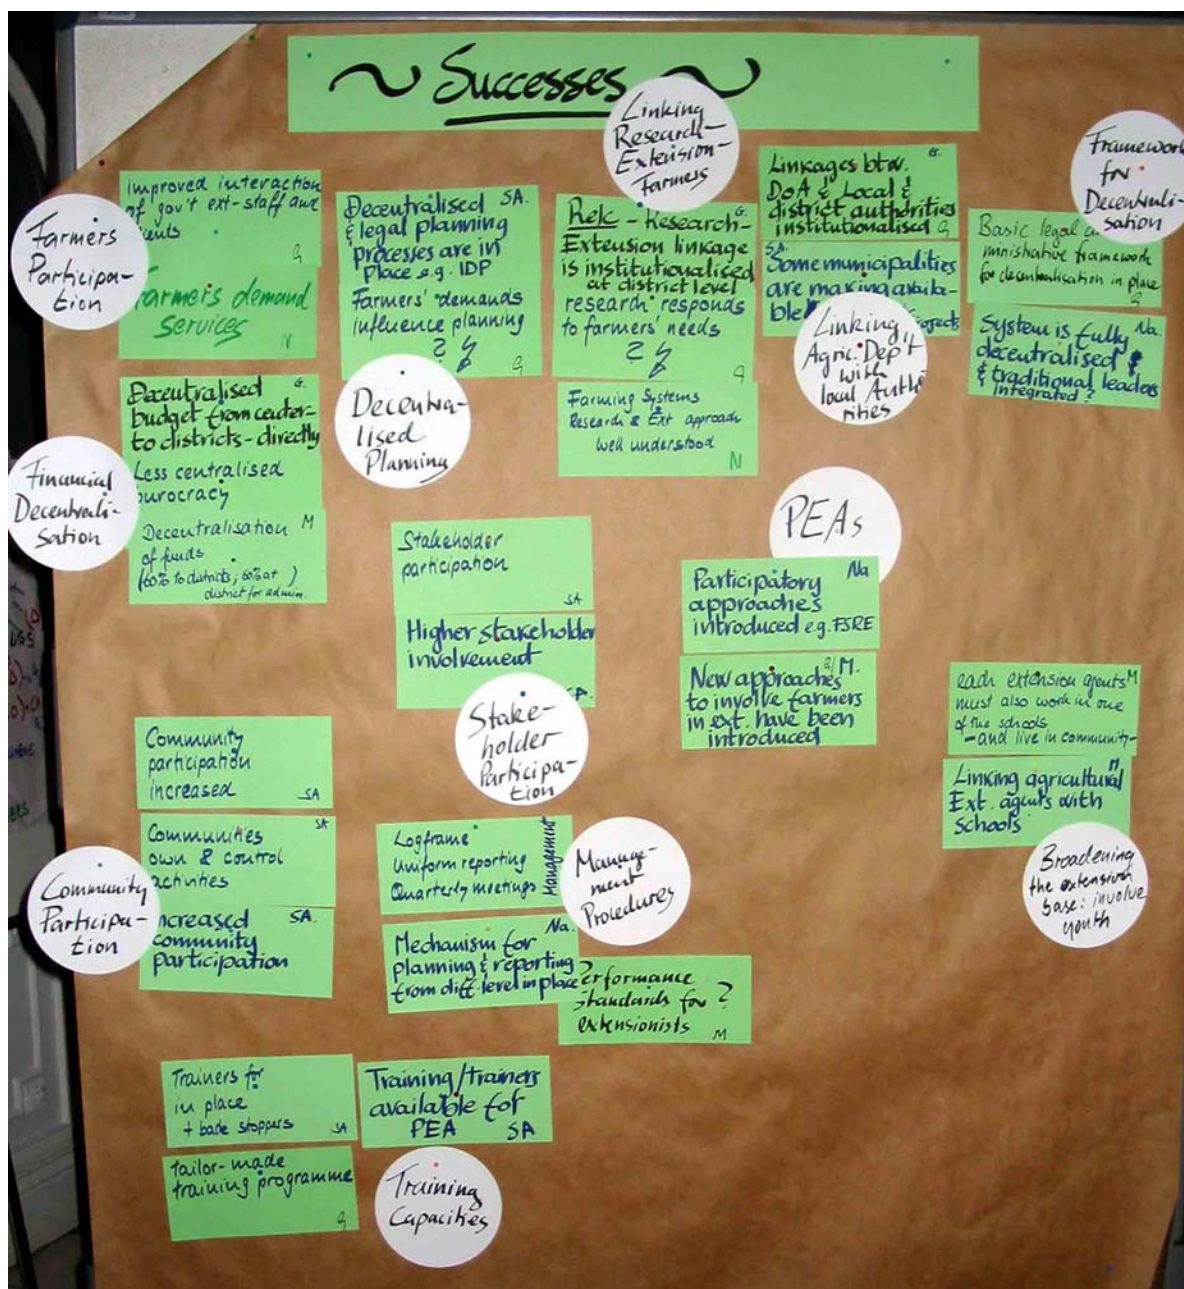 ~ Successes ~
Linking
Research-
Extension-
Farmers
Framework
for
Decentrali-
sation
Farmers
Participa-
tion
improved interaction
of gov't ext-staff and
G
Farmers demand
services
N
Decentralised SA.
& legal planning
processes are in
place e.g. IDP
Farmers' demands
influence planning
?
G
Relc - Research- G.
Extension linkage
is institutionalised
at district level
research responds
to farmers' needs
?
G
Farming Systems
Research & Ext approach
well understood
N
Linkages btw. G.
DoA & Local &
district authorities
institutionalised
G
SA.
Some municipalities
are making availa-
ble
projects
Linking
Agric. Dep't
with
local Autho
rities
Basic legal
ministrative framework
for decentralisation in place
G
System is fully Na.
decentralised
& traditional leaders
integrated?
Decentralised G.
budget from center-
to districts-directly
Less centralised
burocracy
Decentralisation M
of funds
(60% to districts; 60% at )
district for admin.
Financial
Decentrali-
sation
Decentra-
lised
Planning
Stakeholder
participation
SA
Higher stakeholder
involvement
SA.
Stake-
holder
Participa-
tion
PEAs
Participatory Na
approaches
introduced e.g. FSRE
New approaches G/M.
to involve farmers
in ext. have been
introduced
each extension agents M
must also work in one
of the schools
-and live in community-
Linking agricultural M
Ext. agents with
schools
Broadening
the extension
base: involve
youth
Community
participation
increased
SA
Communities SA
own & control
activities
Increased SA.
community
participation
Community
Participa-
tion
Logframe
Uniform reporting
Quarterly meetings
Management
Mechanism for Na.
planning & reporting
from diff. level in place
Manage-
ment
Procedures
Performance
standards for ?
extensionists
M
Trainers for
in place
+ back stoppers SA
tailor-made
training programme
G
Training/trainers
available for
PEA SA
Training
Capacities